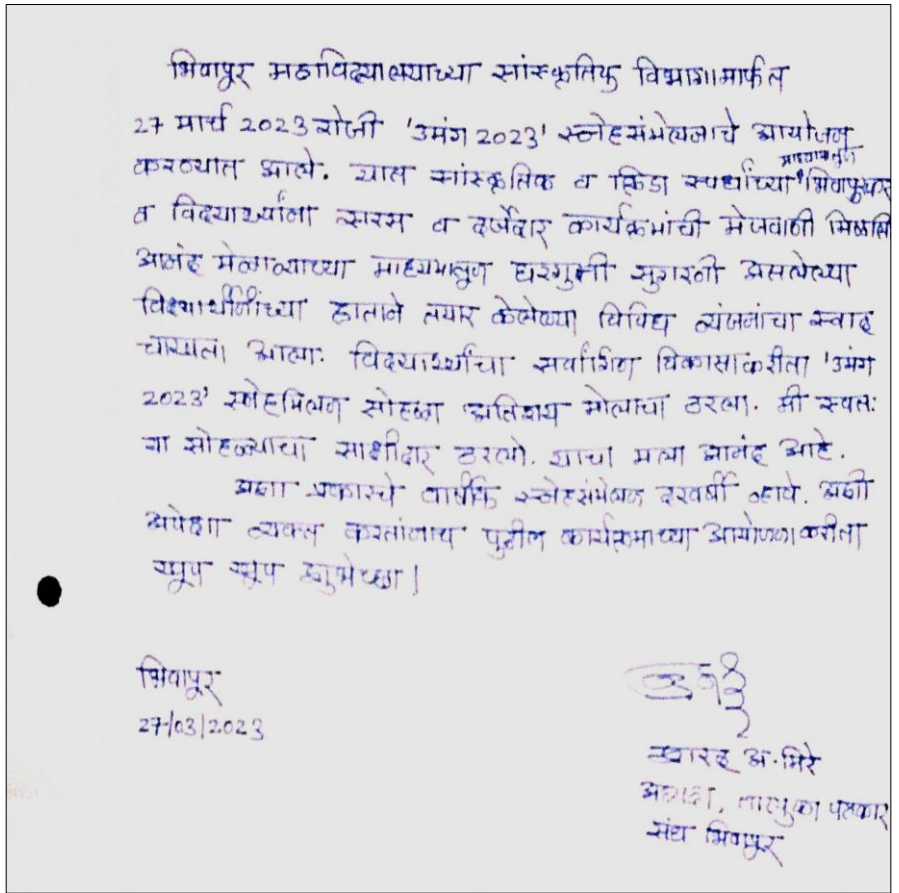 भिवापूर महाविद्यालयाच्या सांस्कृतिक विभागामार्फत
27 मार्च 2023 रोजी 'उमंग 2023' स्नेहसंमेलनाचे आयोजन
करण्यात आले. यात सांस्कृतिक व क्रिडा स्पर्धांच्या माध्यमातून भिवापूरकर
व विद्यार्थ्यांना सरस व दर्जेदार कार्यक्रमांची मेजवानी मिळाली
आनंद मेळाव्याच्या माध्यमातून घरगुती सुगरणी असलेल्या
विद्यार्थीनींच्या हाताने तयार केलेल्या विविध व्यंजनांचा स्वाद
चाखता आला. विद्यार्थ्यांचा सर्वांगिण विकासाकरीता 'उमंग
2023' स्नेहमिलन सोहळा अतिशय मोलाचा ठरला. मी स्वतः
या सोहळ्याचा साक्षीदार ठरलो. याचा मला आनंद आहे.
अशा प्रकारचे वार्षिक स्नेहसंमेलन दरवर्षी व्हावे. अशी
अपेक्षा व्यक्त करतांनाच पुढील कार्यक्रमाच्या आयोजनाकरीता
खूप खूप शुभेच्छा!
भिवापूर
27/03/2023
शरद अ. मिरे
अध्यक्ष, तालुका पत्रकार
संघ भिवापूर